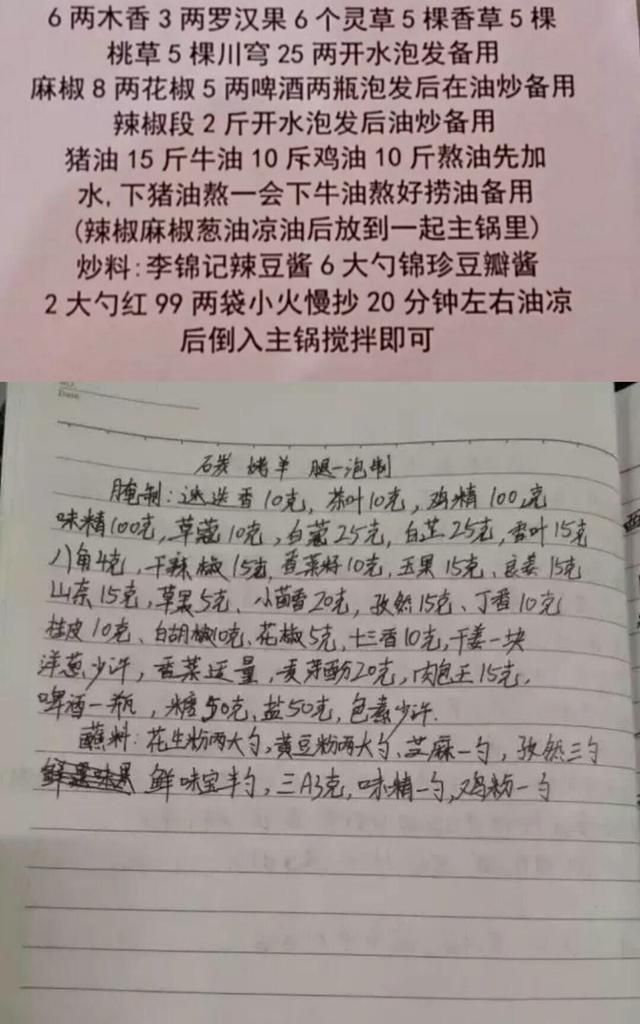 6两木香3两罗汉果6个灵草5棵香草5棵
桃草5棵川穹25两开水泡发备用
麻椒8两花椒5两啤酒两瓶泡发后在油炒备用
辣椒段2斤开水泡发后油炒备用
猪油15斤牛油10斥鸡油10斤熬油先加
水,下猪油熬一会下牛油熬好捞油备用
(辣椒麻椒葱油凉油后放到一起主锅里)
炒料:李锦记辣豆酱6大勺锦珍豆瓣酱
2大勺红99两袋小火慢抄20分钟左右油凉
后倒入主锅搅拌即可
Date
碳烤羊腿一泡制
腌制:迷迭香10克,茶叶10克,鸡精100克
味精100克,草蔻10克,白蔻25克,白芷25克,香叶15克
八角4克,干辣椒15克,香菜籽10克,玉果15克、良姜15克
山奈15克,草果5克、小茴香20克,孜然15克、丁香10克
桂皮10克、白胡椒10克、花椒5克,十三香10克,干姜一块
洋葱少许,香菜适量,麦芽酚20克,肉包王15克,
啤酒一瓶,糖50克、盐50克,包素少许.
蘸料:花生粉两大勺,黄豆粉两大勺、芝麻一勺,孜然三勺
鲜味宝半勺,三A3克,味精一勺,鸡粉一勺
西